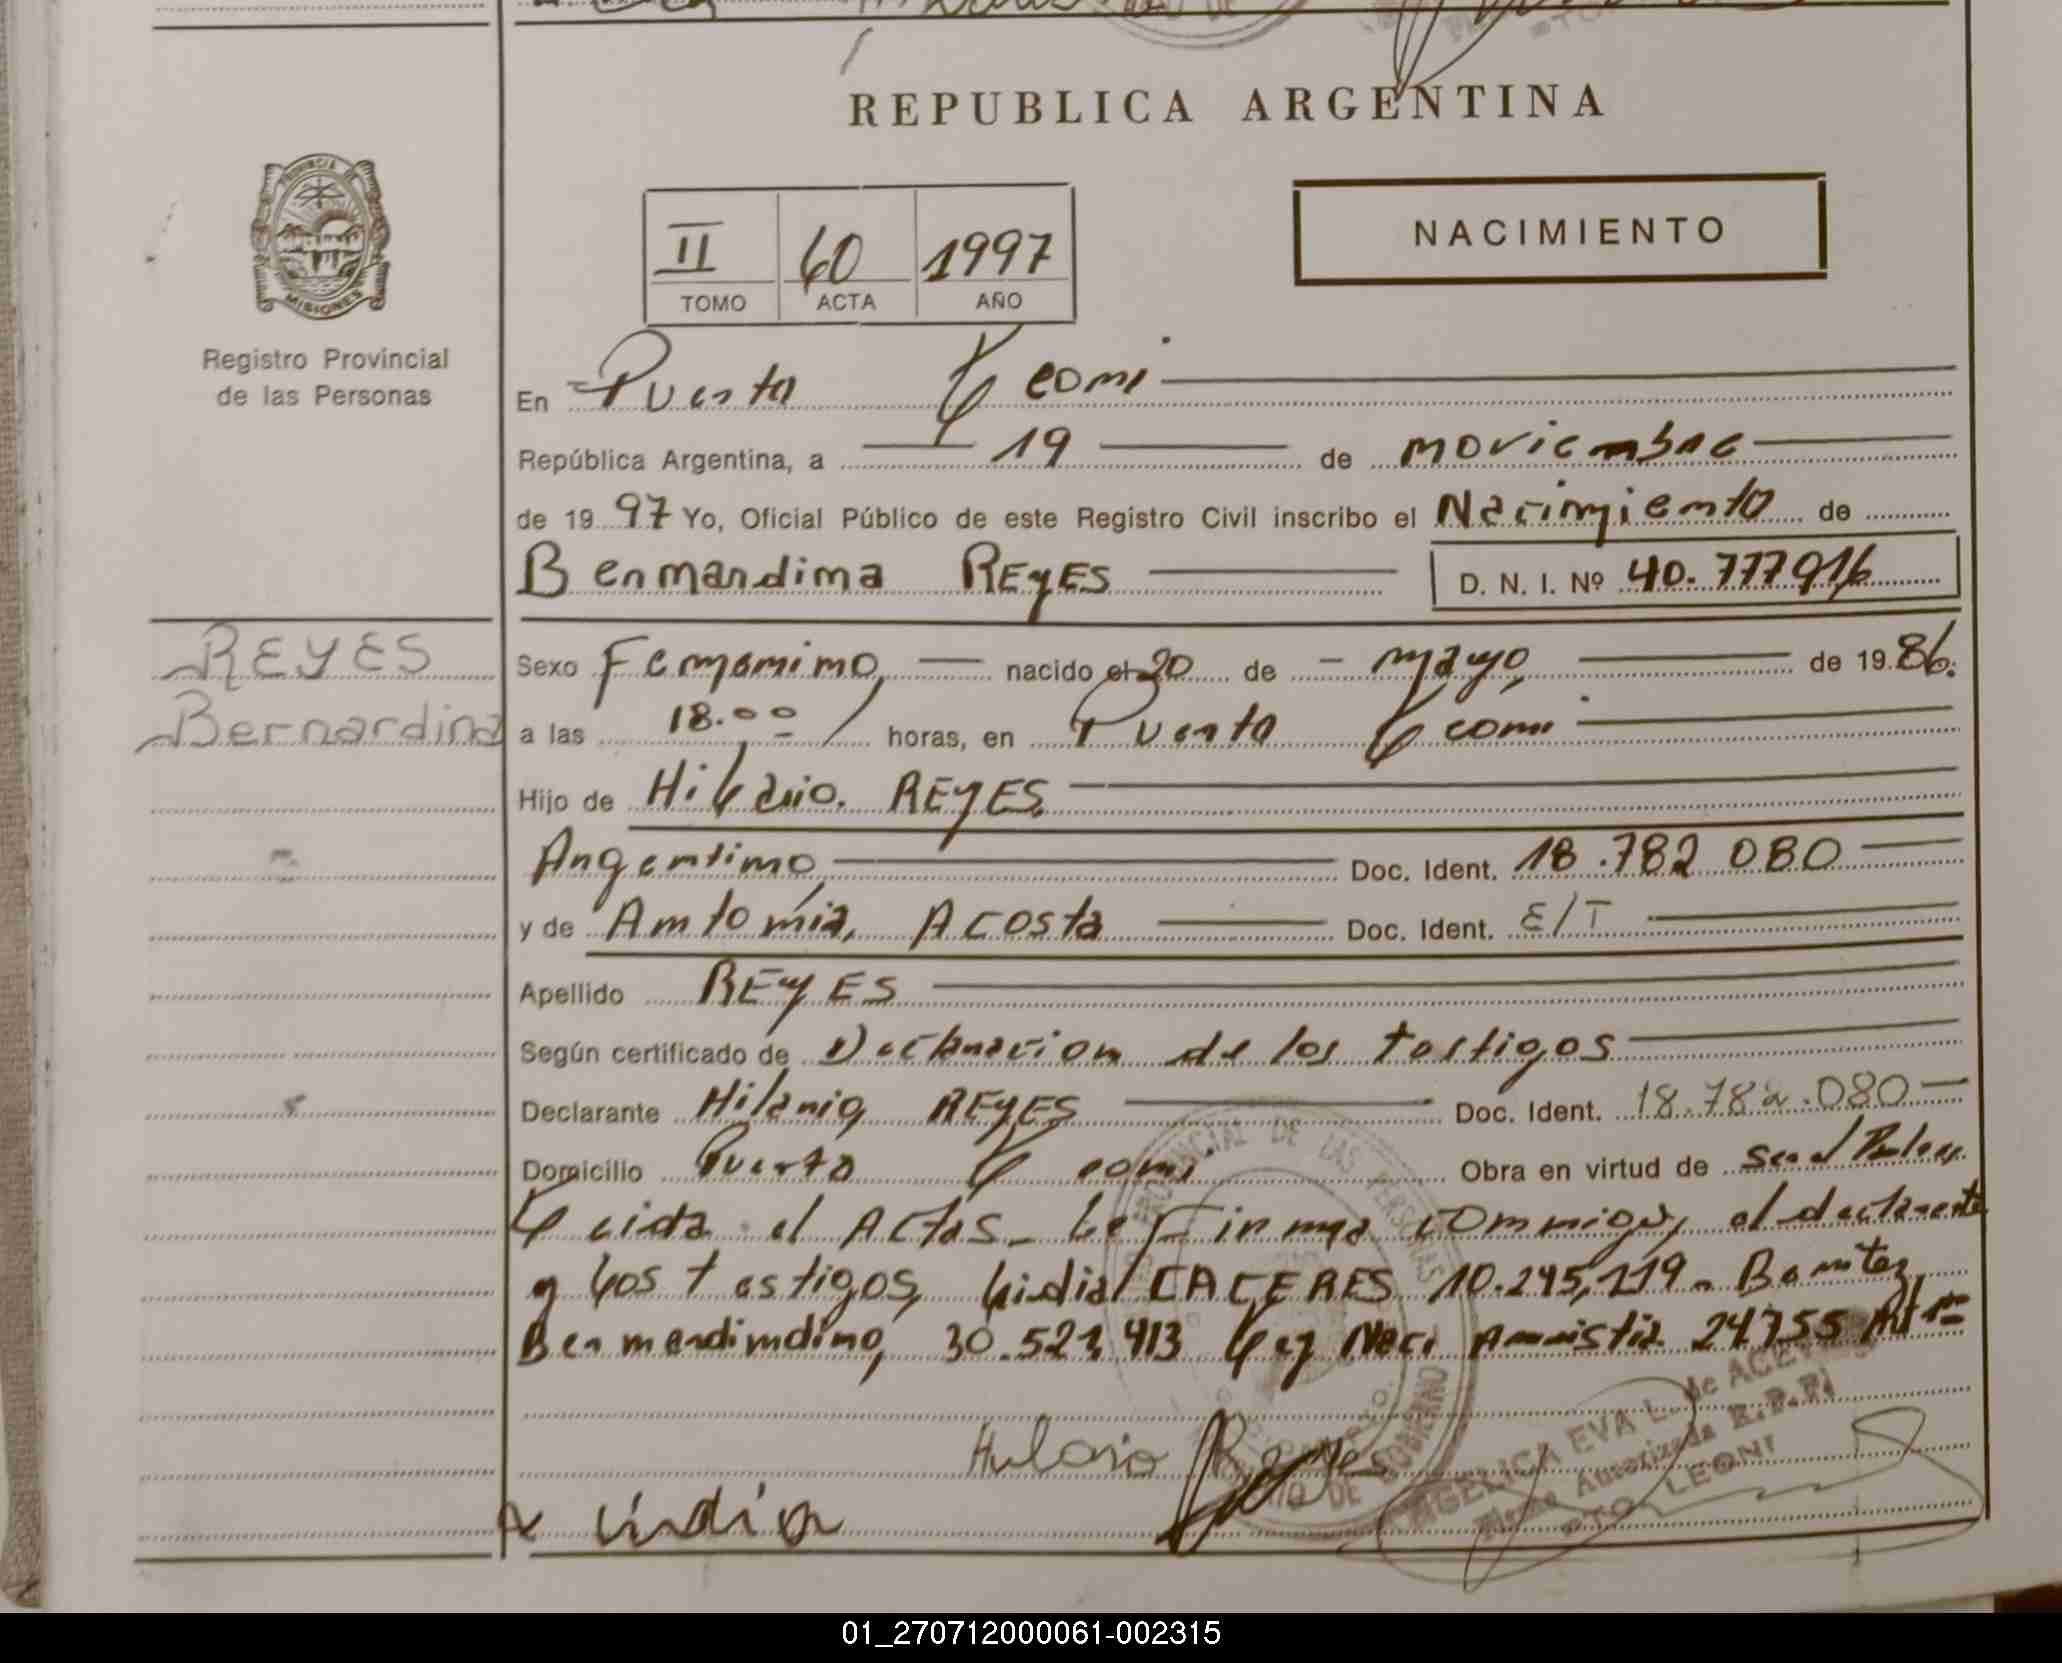 REPUBLICA ARGENTINA
PROVINCIA DE
MISIONES
Registro Provincial
de las Personas
II 60 1997
TOMO ACTA AÑO
NACIMIENTO
En Puerto Leoni
República Argentina, a 19 de noviembre
de 1997 Yo, Oficial Público de este Registro Civil inscribo el Nacimiento de
Bernardina REYES D. N. I. Nº 40.777916
REYES
Bernardina
Sexo Femenino, nacido el 20 de mayo, de 1986.
a las 18.00 horas, en Puerto Leoni
Hijo de Hilario. REYES
Argentino, Doc. Ident. 18.782 080
y de Antonia, ACosta Doc. Ident. E/T
Apellido REYES
Según certificado de Declaracion de los testigos
Declarante Hilario, REYES Doc. Ident. 18.782.080
Domicilio Puerto Leoni Obra en virtud de
Leida el Actas_ Le Firma conmigo, el declarante
y Los testigos, Lidia CACERES 10.245,119. Benitez,
30.521,413 Ley Naci Amnistia 24755 Art 1º
Hilario Reyes
Lidia
ANGELICA EVA L. de ACE
Firma Autorizada R.P.P.
PTO. LEONI
01_270712000061-002315